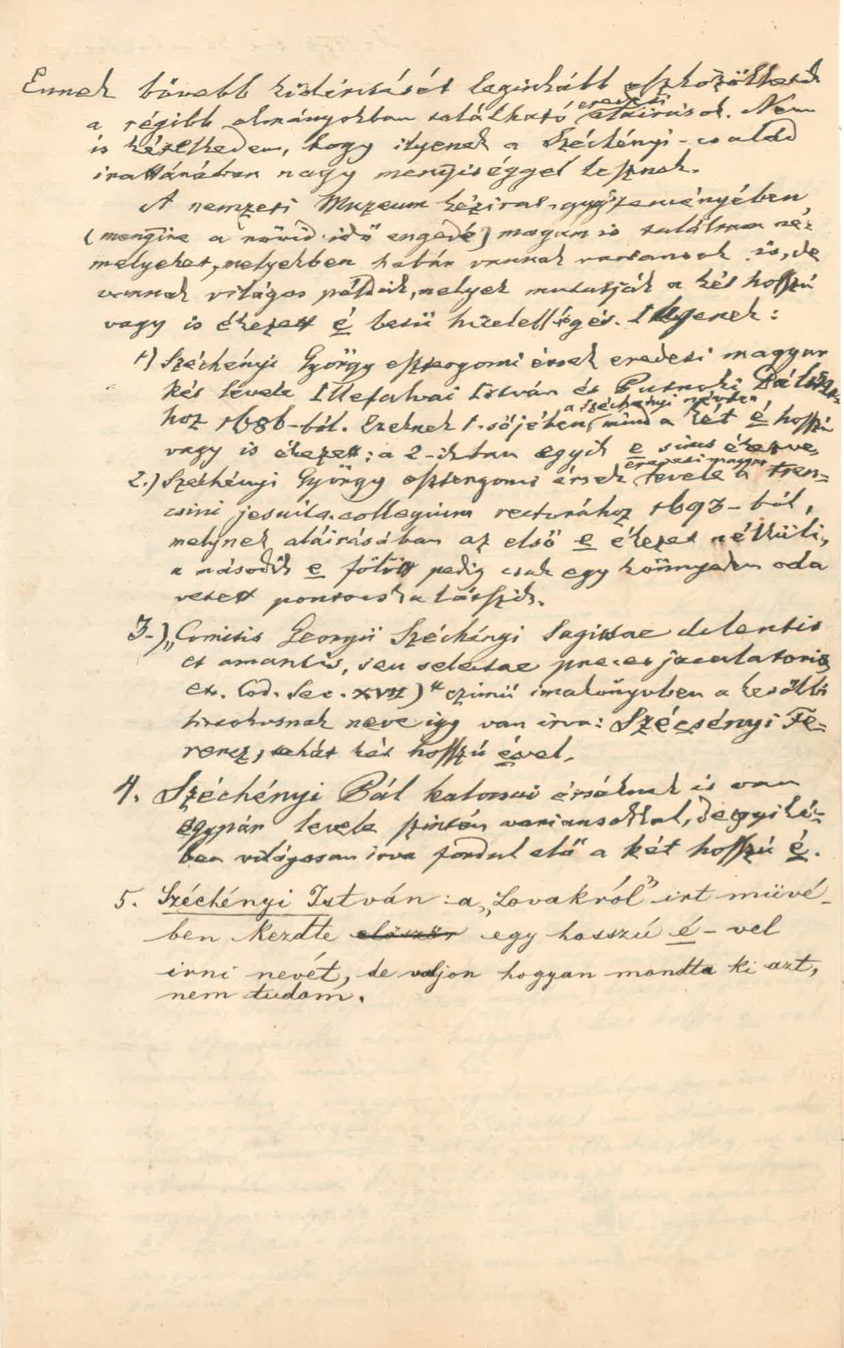 Ennek bővebb kiderítését leginkább eszközölhetik
a régibb okmányokban található eredeti aláirások. Nem
is kételkedem, hogy ilyenek a Széchényi-család
irattárában nagy menyiséggel lesznek.
A nemzeti Muzeum kézirat-gyüjteményében
(menyire a rövid idő engedé) magam is találtam né-
melyeket, melyekben habár vannak variansok is, de
vannak világos példák, melyek mutatják a két hosszú
vagy is ékezett é betü hitelességét. Ilyenek:
1) Széchényi György esztergomi érsek eredeti magyar
két levele Illefalvai István és Putnoki
hoz 1686-ból. Ezeknek 1-sőjében a Széchényi névben mind a két é hosszú
vagy is ékezett; a 2-ikban egyik e sincs ékezve.
2.) Széchényi György esztergomi érsek eredeti magyar levele a tren-
csini jesuita collegium rectorához 1693-ból,
melynek aláirásában az első e ékezet nélküli,
a második e fölött pedig csak egy könnyeden oda
vetett pontocska látszik.
3.) „Comitis Georgii Széchényi Sagittae dolentis
et amantis, seu selectae preces jaculatoriae
ex. Cod. Sec. XVII)" czimü imakönyvben a későbbi
birtokosnak neve igy van irva: Szécsényi Fe-
rencz, tehát két hosszú ével.
4. Széchényi Pál kalocsai érseknek is van
egypár levele szintén variansokkal, de egyiké-
ben világosan irva fordul elő a két hosszú é.
5. Széchényi István: a „Lovakról" irt müvé-
ben kezdte először egy hosszú é-vel
irni nevét, de valjon hogyan mondta ki azt,
nem tudom.